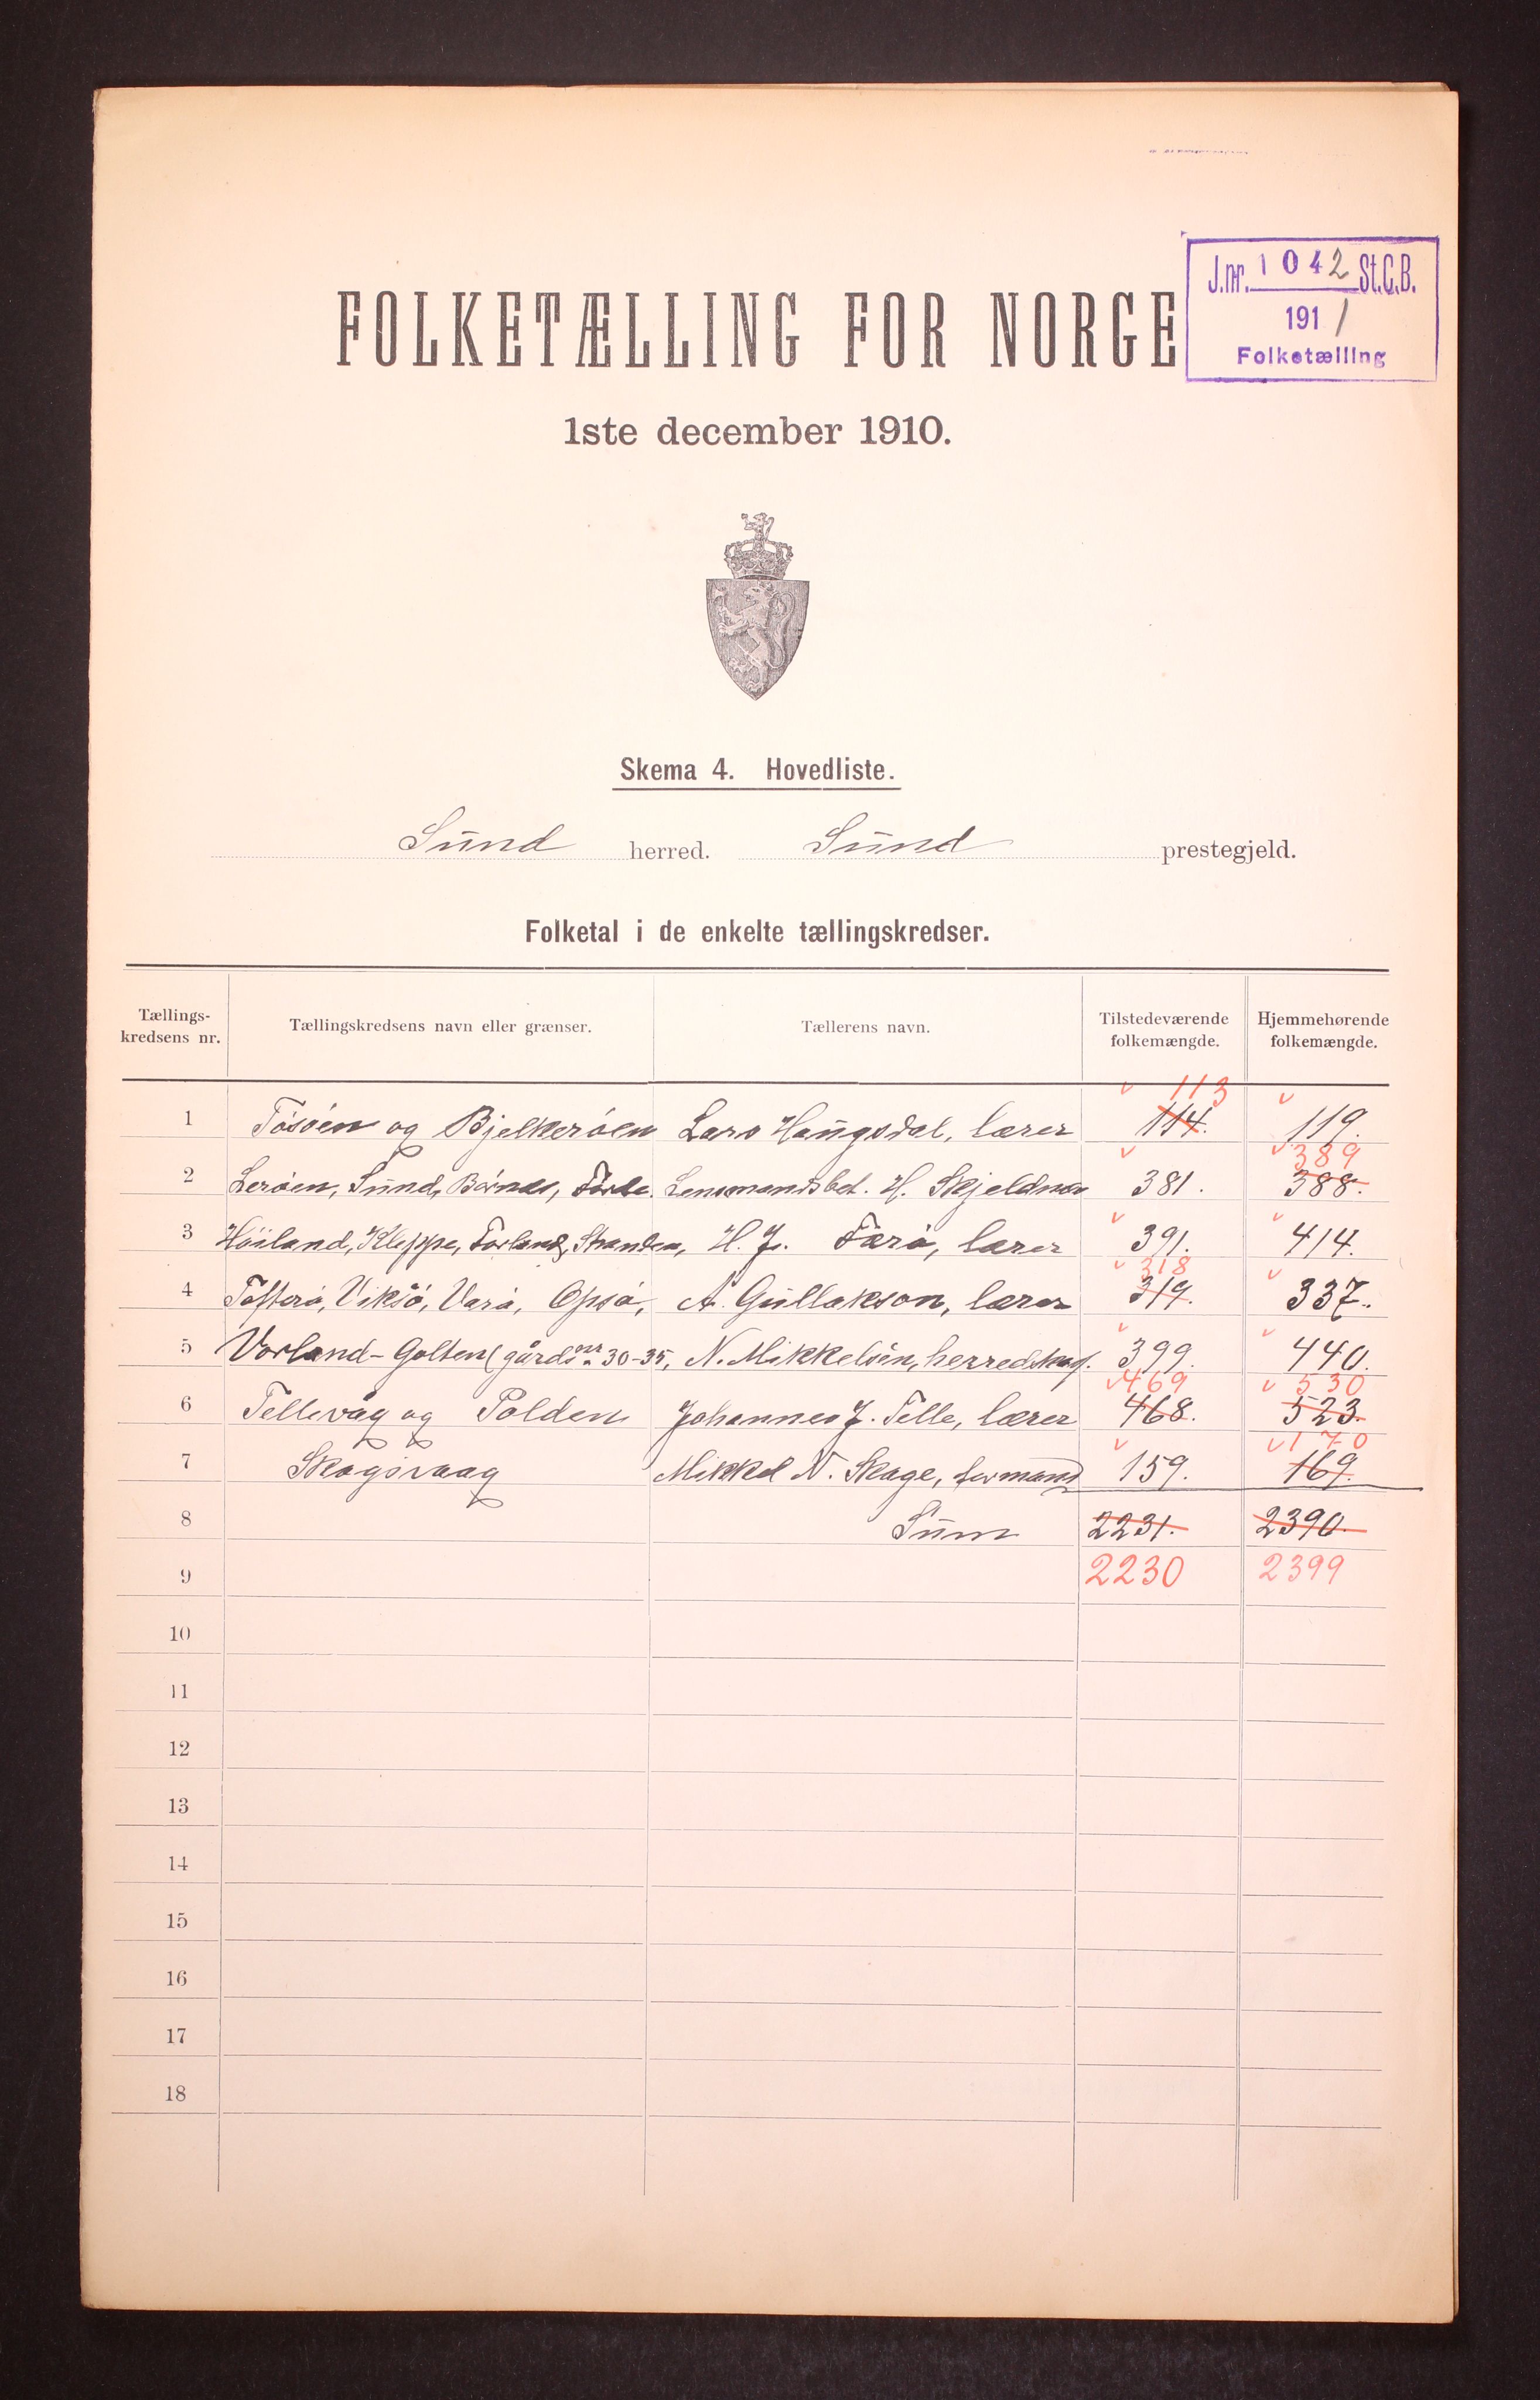 J.nr. 1042 St.C.B.
1911
Folketælling
FOLKETÆLLING FOR NORGE
1ste december 1910.
Skema 4. Hovedliste.
Sund herred. Sund prestegjeld.
Folketal i de enkelte tællingskredser.
Tællings-kredsens nr. Tællingskredsens navn eller grænser. Tællerens navn. Tilstedeværende folkemængde. Hjemmehørende folkemængde.
113
1 Tösöen og Bjelkeröen Lars Haugsdal, lærer 114. 119.
389
2 Leröen, Sund, Börnes, Förde. Lensmandsbet. H. Skjeldnes 381. 388.
3 Höiland, Kleppe, Forland, Stranden, H. J. Tærö, lærer 391. 414.
318
4 Tofterö, Viksö, Varö, Opsö, A. Gullakson, lærer 319. 337.
5 Vorland-Golten (gårdsnr. 30-35, N. Mikkelsen, herredskas. 399. 440.
469 530
6 Tellevåg og Polden Johannes J. Telle, lærer 468. 523.
170
7 Skogsvaag Mikkel N. Skage, formand 159. 169.
8 Sum 2231. 2390.
9 2230 2399
10
11
12
13
14
15
16
17
18